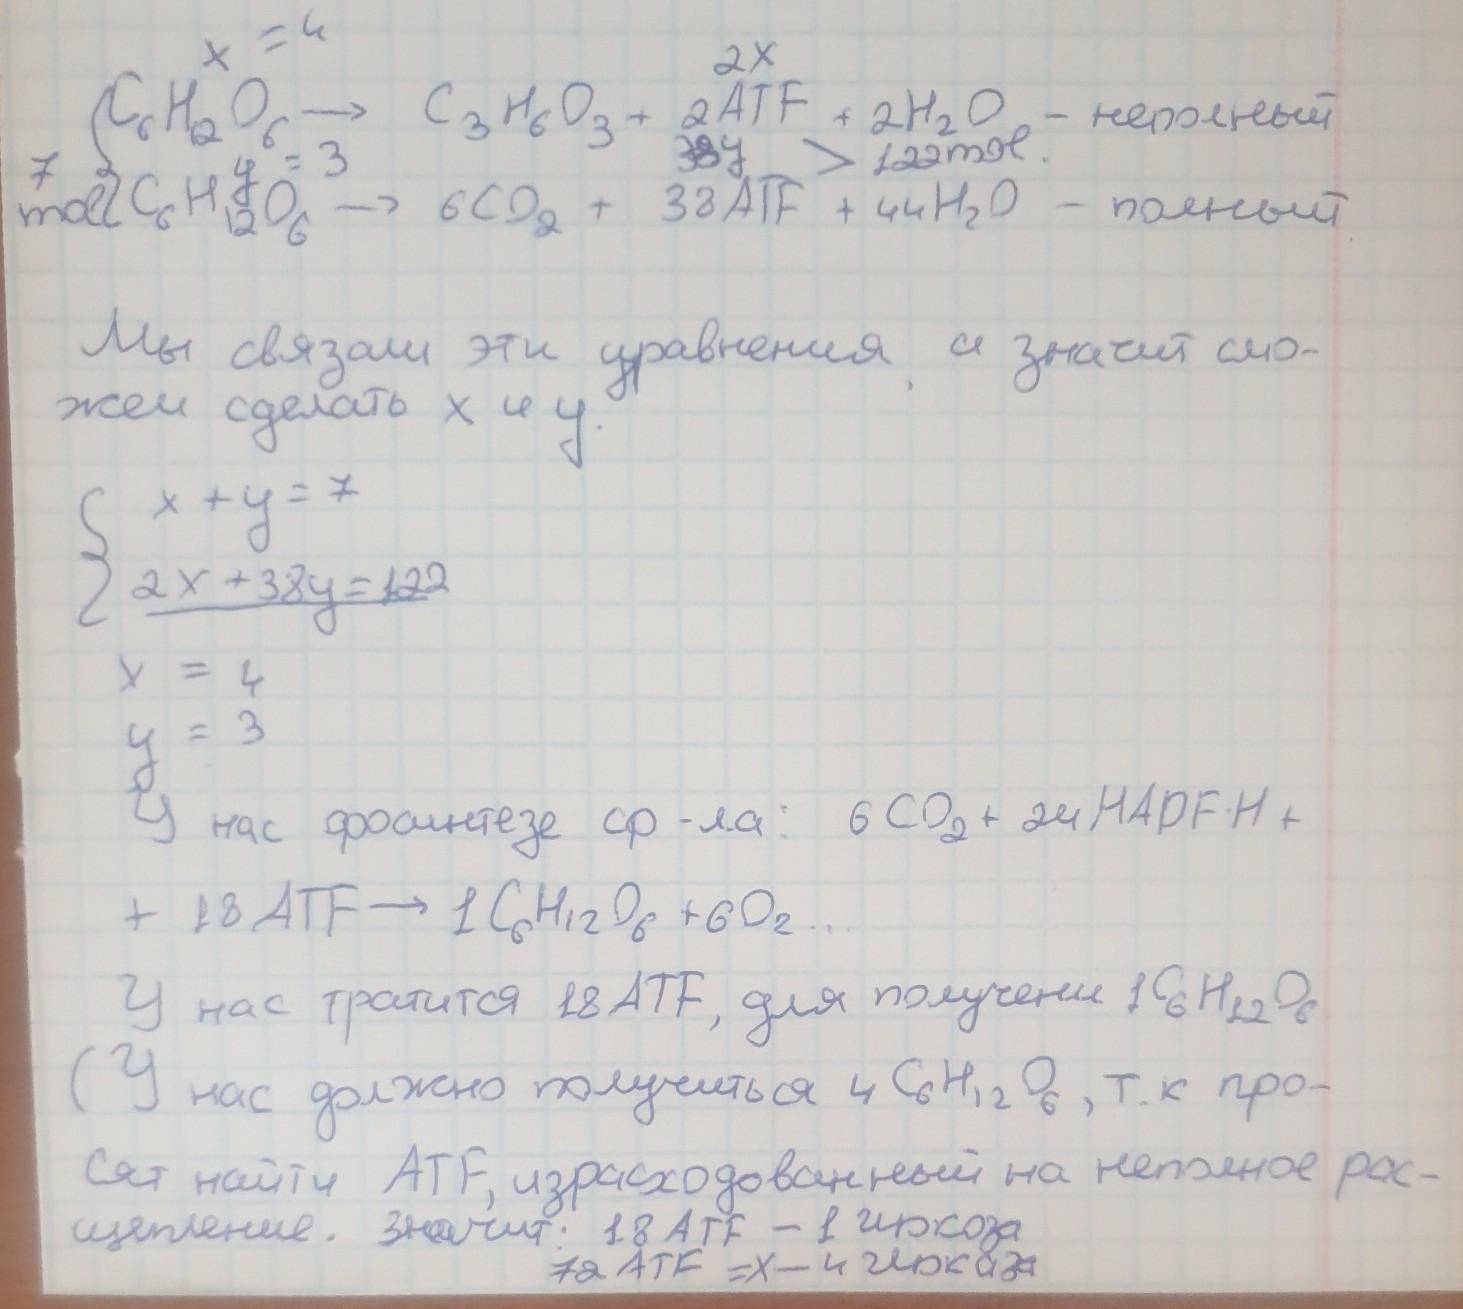 x = 4
2x
C₆H₁₂O₆ → C₃H₆O₃ + 2ATF + 2H₂O - неполный
7 y = 3 38y > 122 mol.
mol C₆H₁₂O₆ → 6CO₂ + 38ATF + 44H₂O - полный
Мы связали эти уравнения, и значит смо-
жем сделать x и y.
x + y = 7
2x + 38y = 122
x = 4
y = 3
У нас фосинтезе ф-ла: 6CO₂ + 24HADF·H +
+ 18 ATF → 1C₆H₁₂O₆ + 6O₂...
У нас тратится 18 ATF, для получени 1C₆H₁₂O₆
(У нас должно получиться 4 C₆H₁₂O₆, т.к про-
сят найти ATF, израсходованный на неполное рас-
щепление. Значит: 18 ATF - 1 глюкоза
72 ATF = x - 4 глюкоза